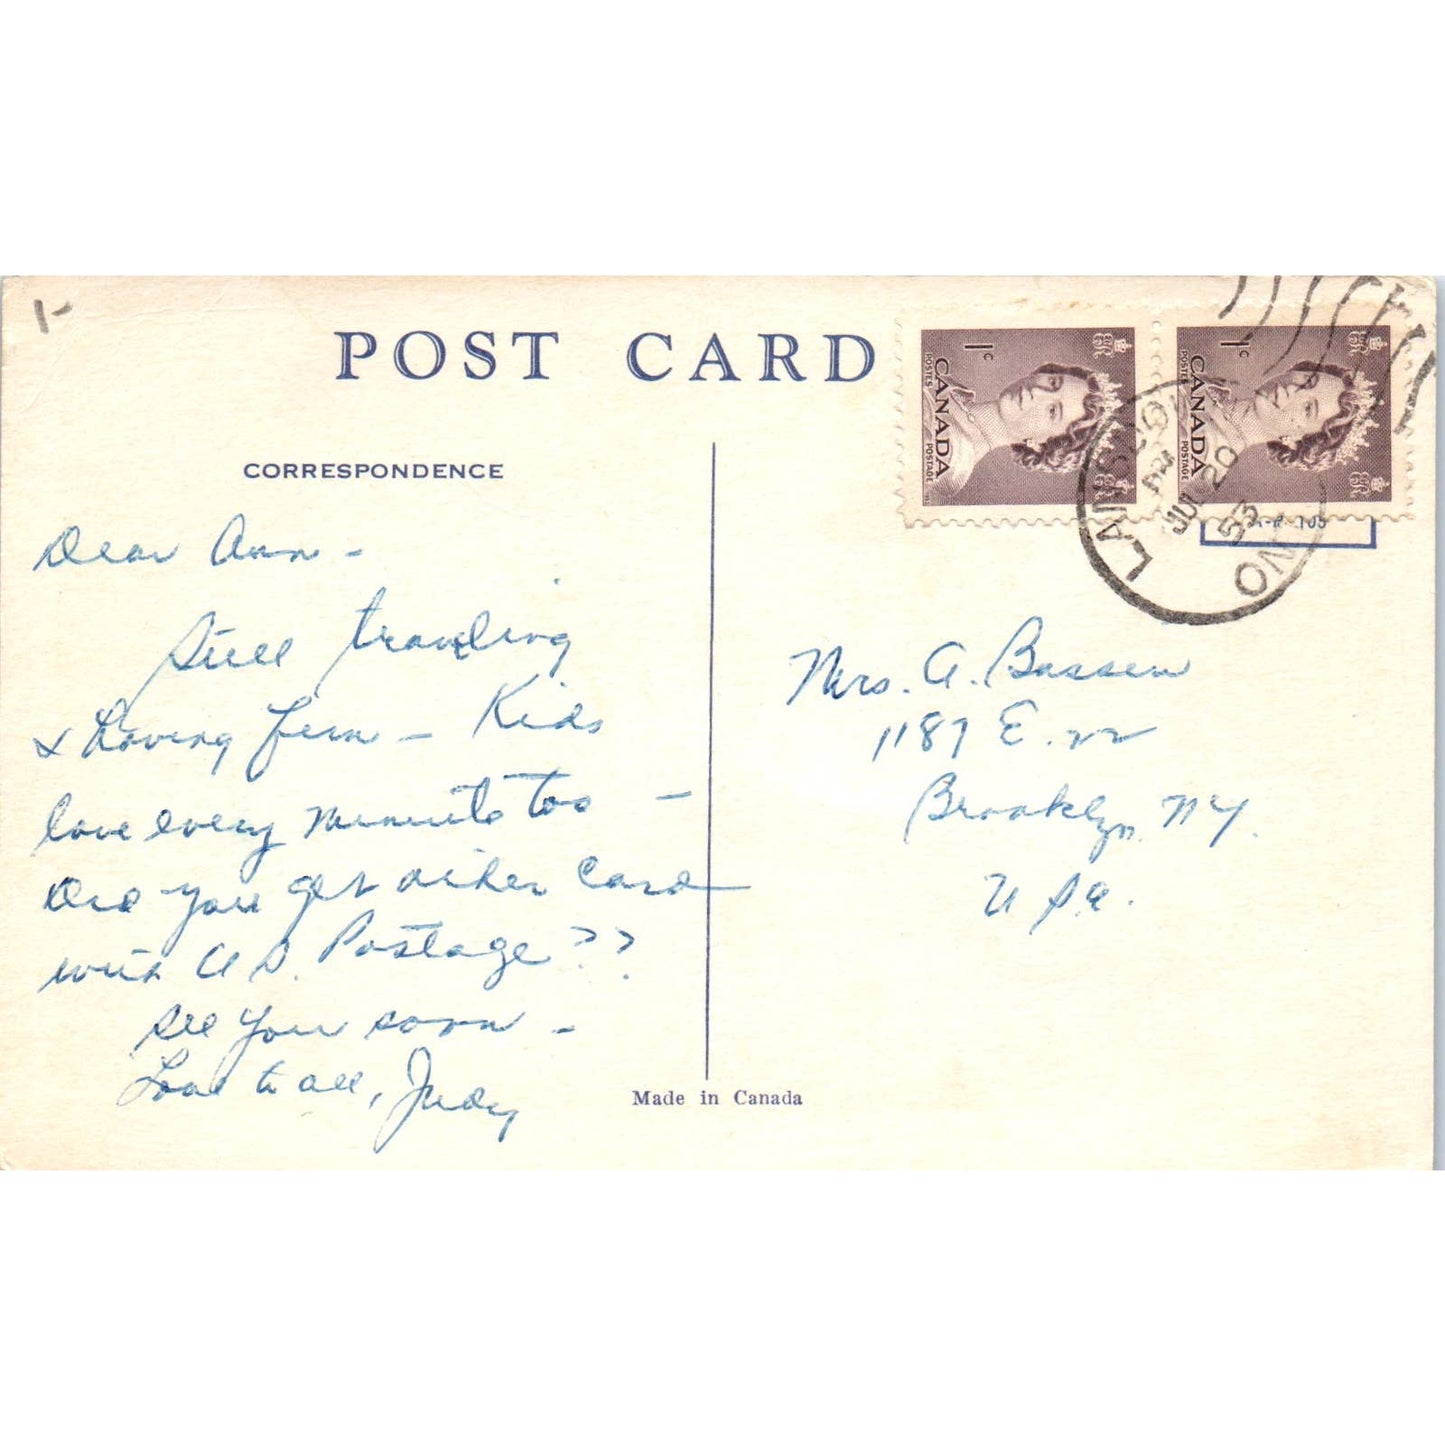 1-
POST CARD
1c
CANADA
POSTES POSTAGE
1c
CANADA
POSTES POSTAGE
PM
JUL 20
53
ONT
CORRESPONDENCE
Dear Ann -
Still traveling
& having fun - Kids
love every minute too -
Did you get other card
with U S. Postage ??
See you soon -
Love to all, Judy
Mrs. A. Bassen
1187 E. 22
Brooklyn, NY.
U S.A.
Made in Canada